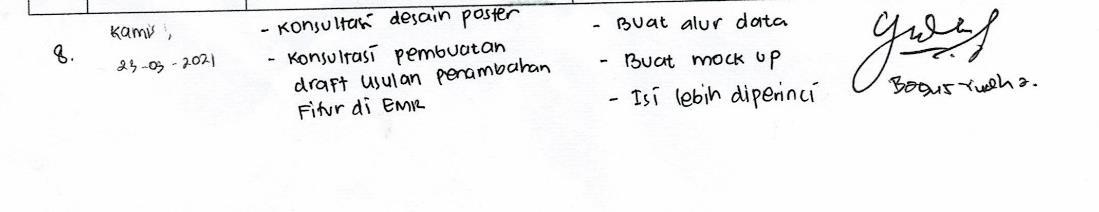 8.
Kamis,
23-03-2021
- Konsultasi desain poster
- Konsultasi pembuatan
draft usulan penambahan
Fitur di EMR
- Buat alur data
- Buat mock up
- Isi lebih diperinci